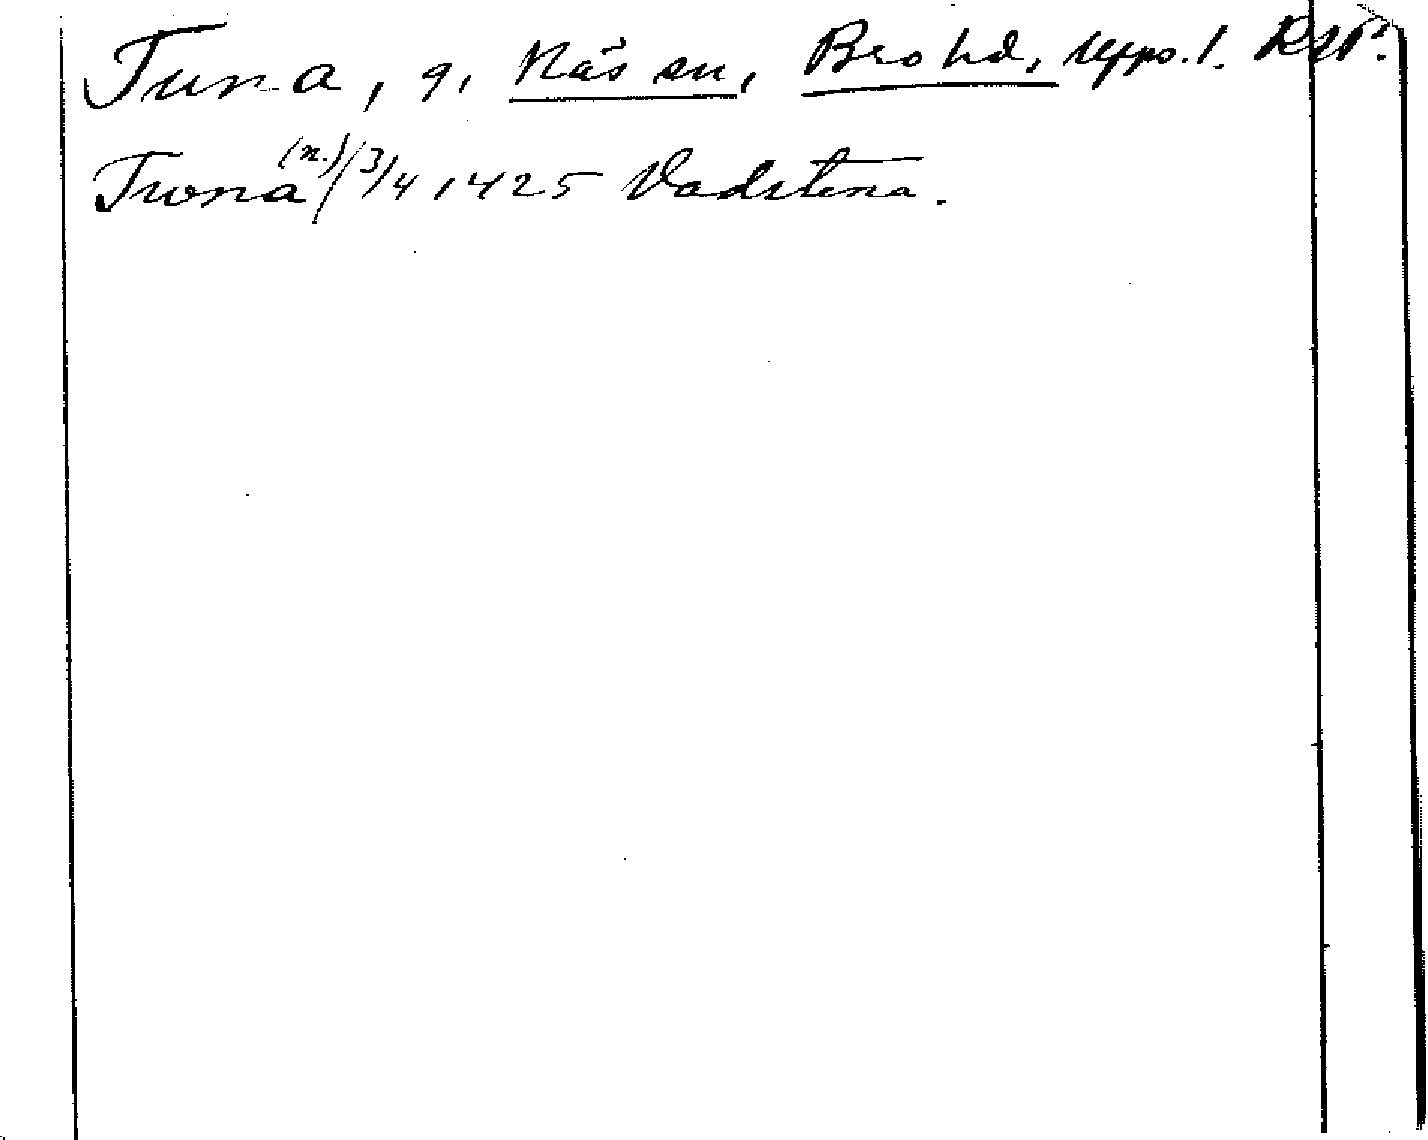 Tuna, g. Näs sn, Bro hd, Upps. l.
Twna (n.) 3/4 1425 Vadstena.